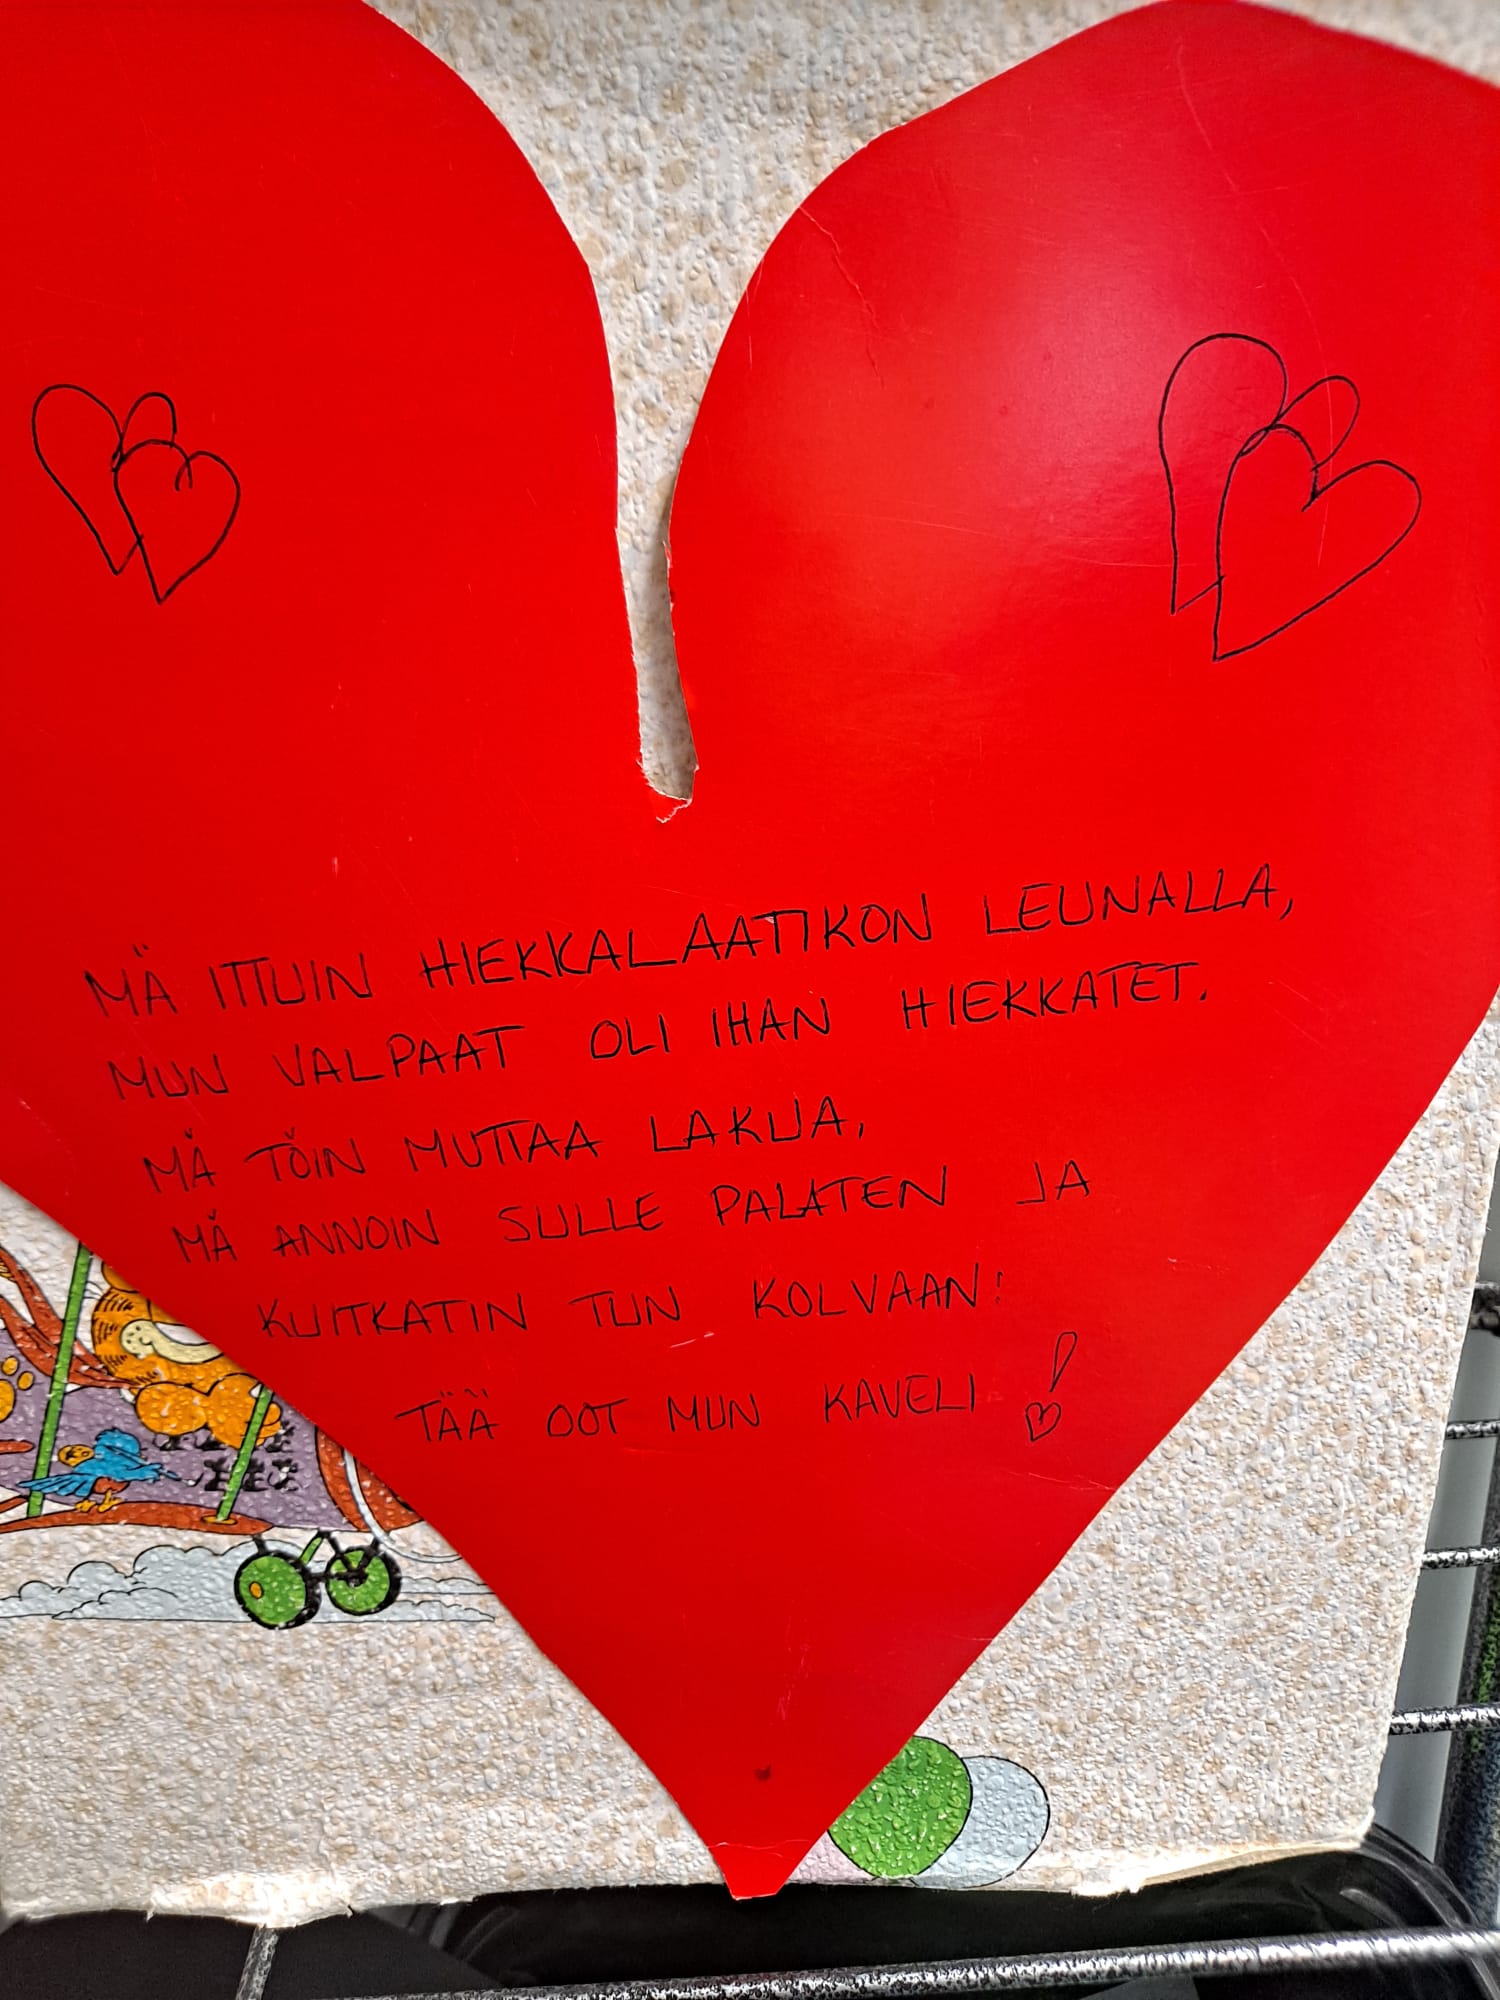 MÄ ITTUIN HIEKKALAATIKON LEUNALLA,
MUN VALPAAT OLI IHAN HIEKKATET.
MÄ TÖIN MUTTAA LAKUA,
MÄ ANNOIN SULLE PALATEN JA
KUITKATIN TUN KOLVAAN:
TÄÄ OOT MUN KAVELI!